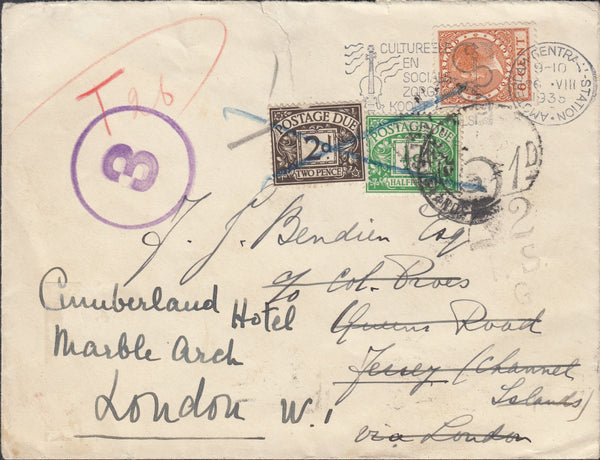 T 20
3
CULTUREE
EN
SOCIAL
ZORG
KOO
CENTRAAL STATION
9-10
VIII
1935
6 CENT
POSTAGE DUE
2d
TWO PENCE
POSTAGE DUE
HALF
1D
2
S
G
J. J. Bendien Esq
c/o Col. Broes
Queens Road
Jersey (Channel
Islands)
via London
Cumberland Hotel
Marble Arch
London W.1